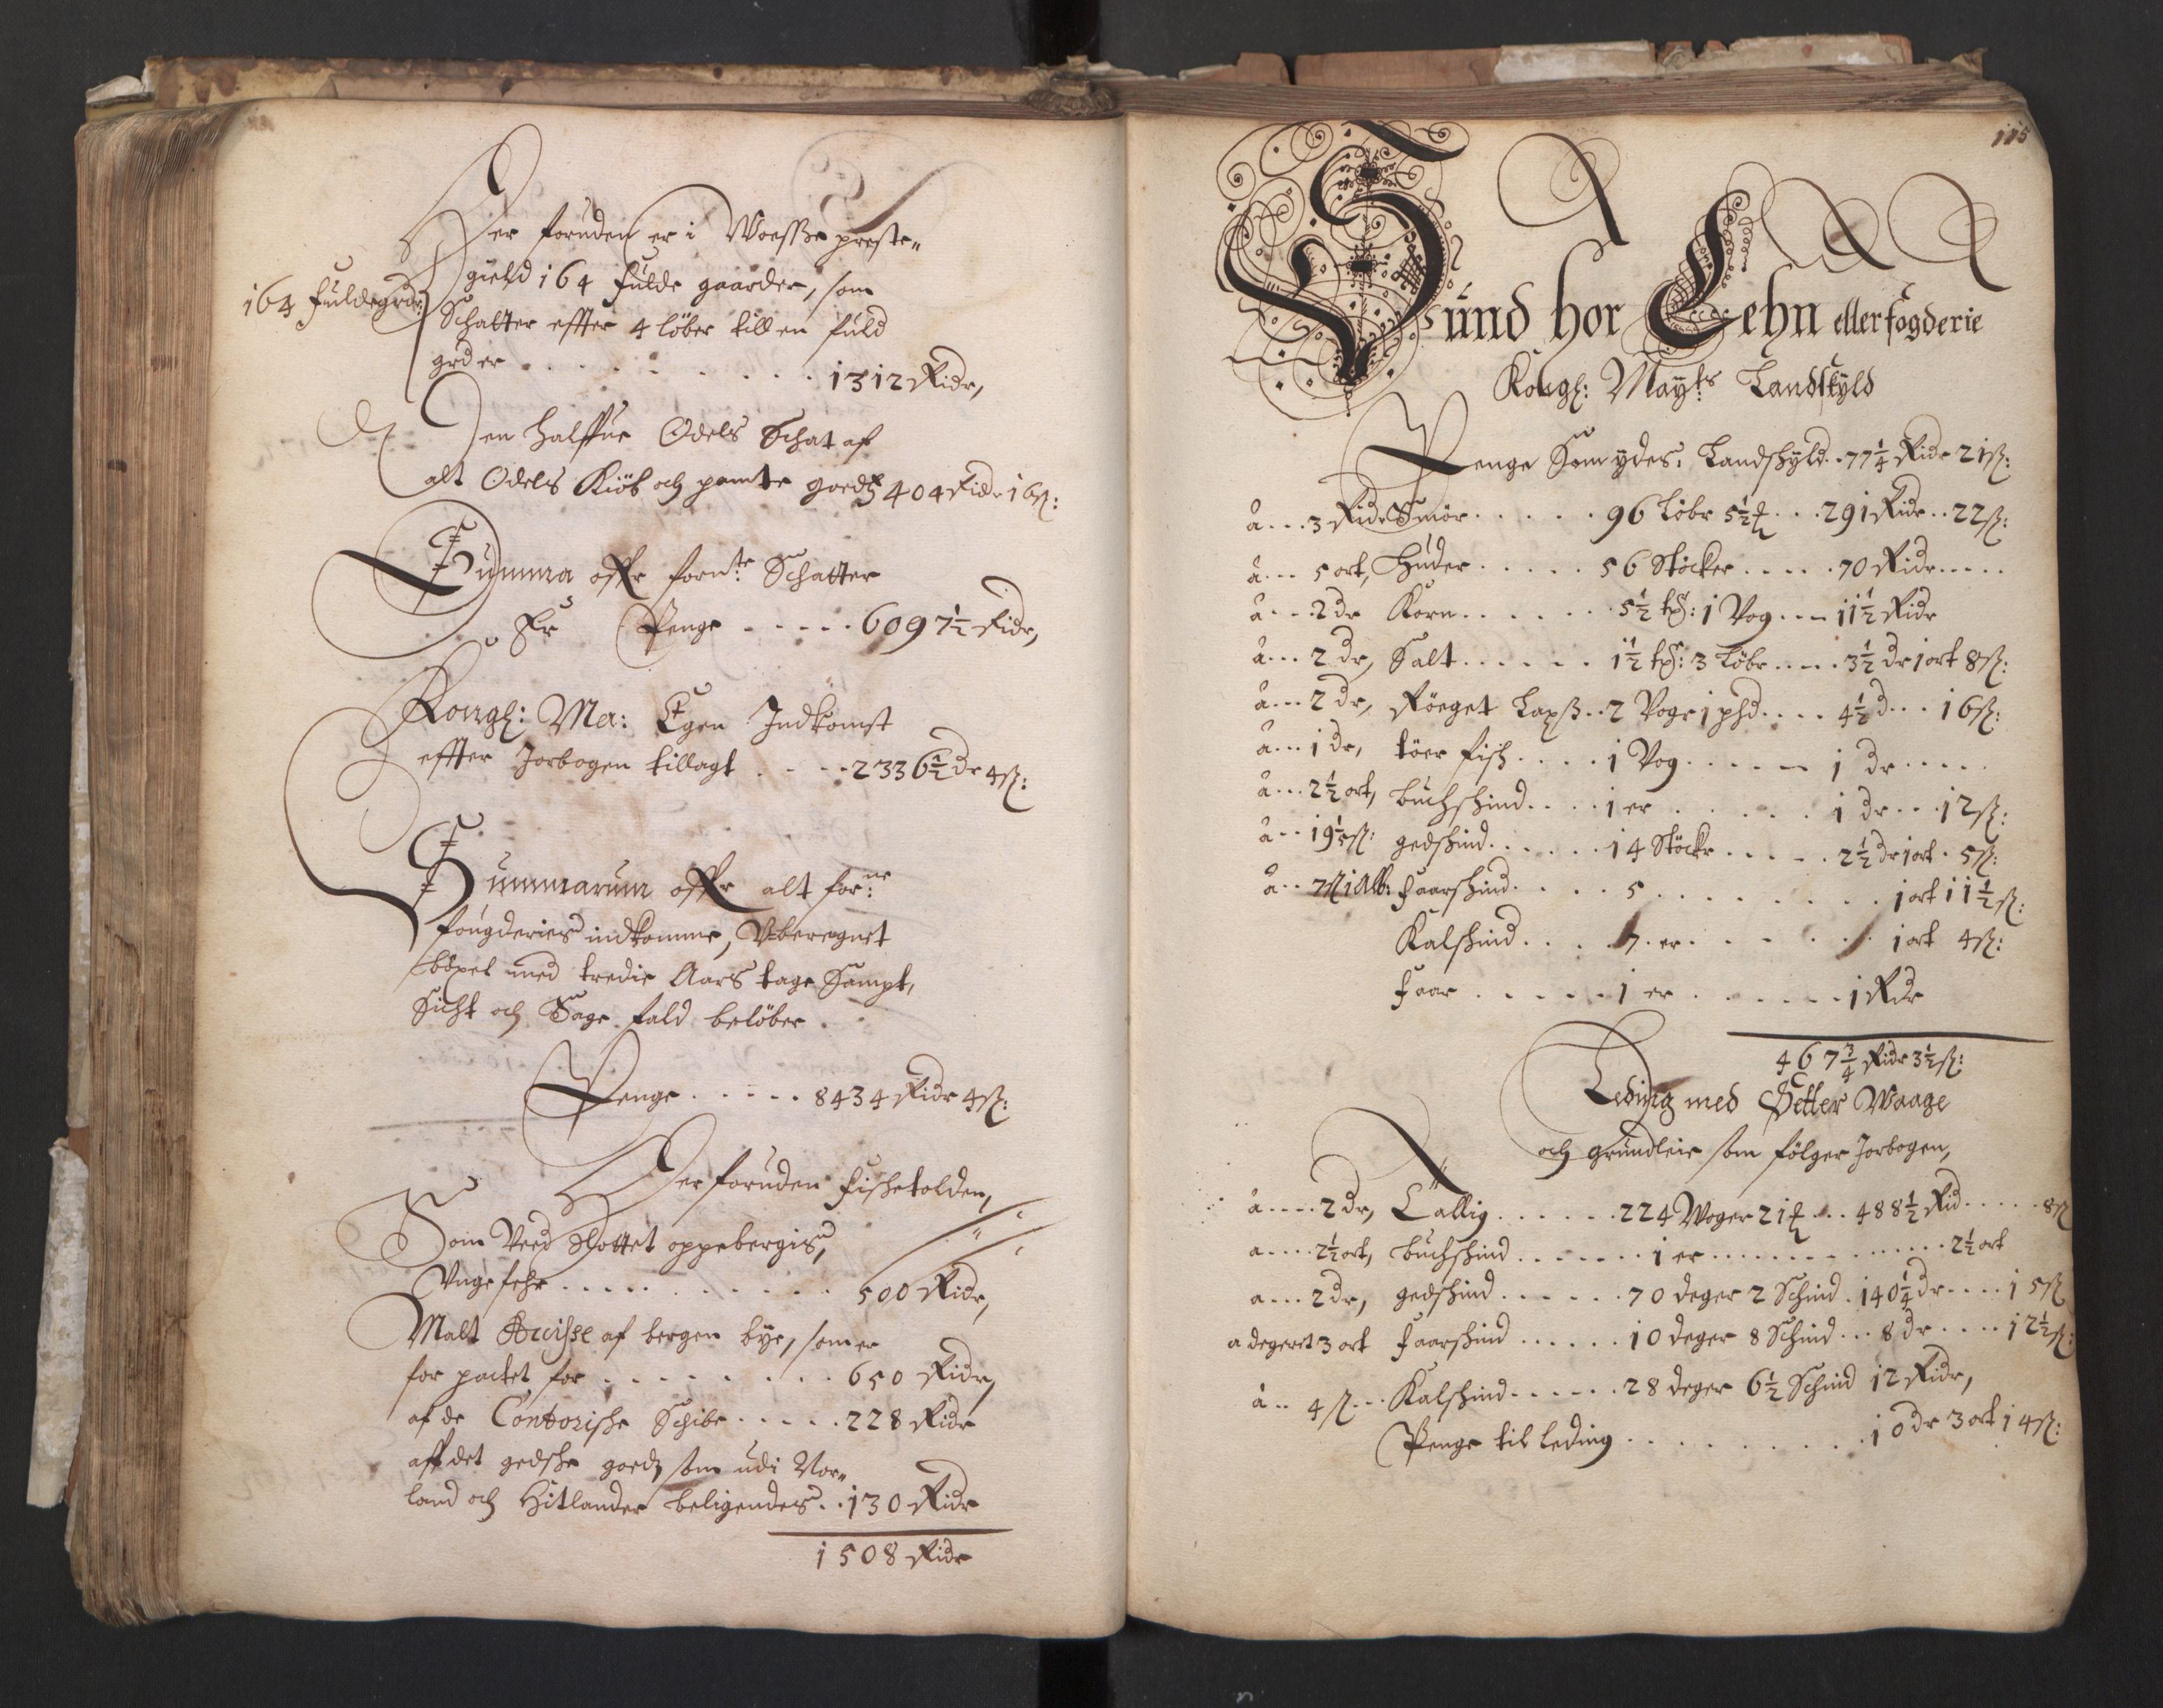 Her foruden er i Woesse preste„
gield 164 fulde gaarder, som
164 fulde grdr:
Schatter effter 4 löber till en fuld
grd er . . . . . . . . 1312 Ridr,
Den halffue Odels Schat af
alt Odels Kiöb och pante goedz 404 Ridr 16 ß:
Summa offr forn:te Schatter
Er Penge . . . . . 6097½ Ridr,
Kongl: Ma: Egen Indkomst
effter Jorbogen tillagt . . . . 2336½ dr 4 ß:
Summarum offr alt for:ne
fougderies indkomme, Vberegnet
böxel med tredie Aars tage Sampt,
Sicht och Sage fald belöber .
Penge . . . . . 8434 Ridr 4 ß:
Her foruden fischetolden,
Som Veed Slottet oppebergis,
Vngefehr . . . . . . . . . . 500 Ridr,
Malt Accisse af bergen bye, som er
for pactet for . . . . . . . . 650 Ridr,
af de Contorische Schibe . . . . . 228 Ridr
aff det gedske goedz som udi Nor„
land och Hitlander beligendes . . 130 Ridr
1508 Ridr
115
Sund hor Lehn eller fogderie
Kongl: Mayts Landskyld
Penge Som ydes, Landskyld . . 77¼ Ridr 21 ß:
à . . . 3 Ridr Smör . . . . . 96 Löbr 5½ . . . 291 Ridr . . 22 ß:
à . . . 5 ort, Huder . . . . . 56 Stöcker . . . . 70 Ridr . . . . .
à . . . 2 dr Korn . . . . . . 5½ tø: 1 Vog . . . 11½ Ridr
à . . . 2 dr, Salt . . . . . . 1½ tø: 3 Löbr . . . . 3½ dr 1 ort 8 ß:
à . . . 2 dr, Röeget Lax . . 2 Voge 1 phd . . . . 4½ d . . . 16 ß:
à . . . 1 dr, töer fisch . . . . 1 Vog . . . . . 1 dr . . . . .
à . . . 2½ ort, buchschind . . . . 1 er . . . . . . 1 dr . . . 12 ß:
à . . 19⅕ ß: gedschind . . . . . . 14 Stöckr . . . . . 2½ dr 1 ort . 5 ß:
à . . 7 ß 1 alb: faarschind . . . . 5 . . . . . . . . . 1 ort 11½ ß:
Kalschind . . . . 7 er . . . . . . 1 ort 4 ß:
faar . . . . . 1 er . . . . . . 1 Rdr
467¾ Ridr 3½ ß:
Leding med Setter Waage
och grundleie som fölger Jorbogen,
à . . . . 2 dr, Tallig . . . . . . 224 Woger 21 . . . 488½ Rid . . . . . 8 ß
a . . . . 2½ ort, buchschind . . . . . . . 1 er . . . . . . . . . . . . 2½ ort
a . . . 2 dr, gedschind . . . . . . 70 deger 2 Schind . 140¼ dr . . . . 15 ß
a degeret 3 ort faarschind . . . . . . 10 deger 8 Schind . . . 8 dr . . . . 12½ ß:
à . . 4 ß . . . Kalschind . . . . . 28 deger 6½ Schind 12 Ridr,
Penge til leding . . . . . . . . . 10 dr 3 ort 14 ß: